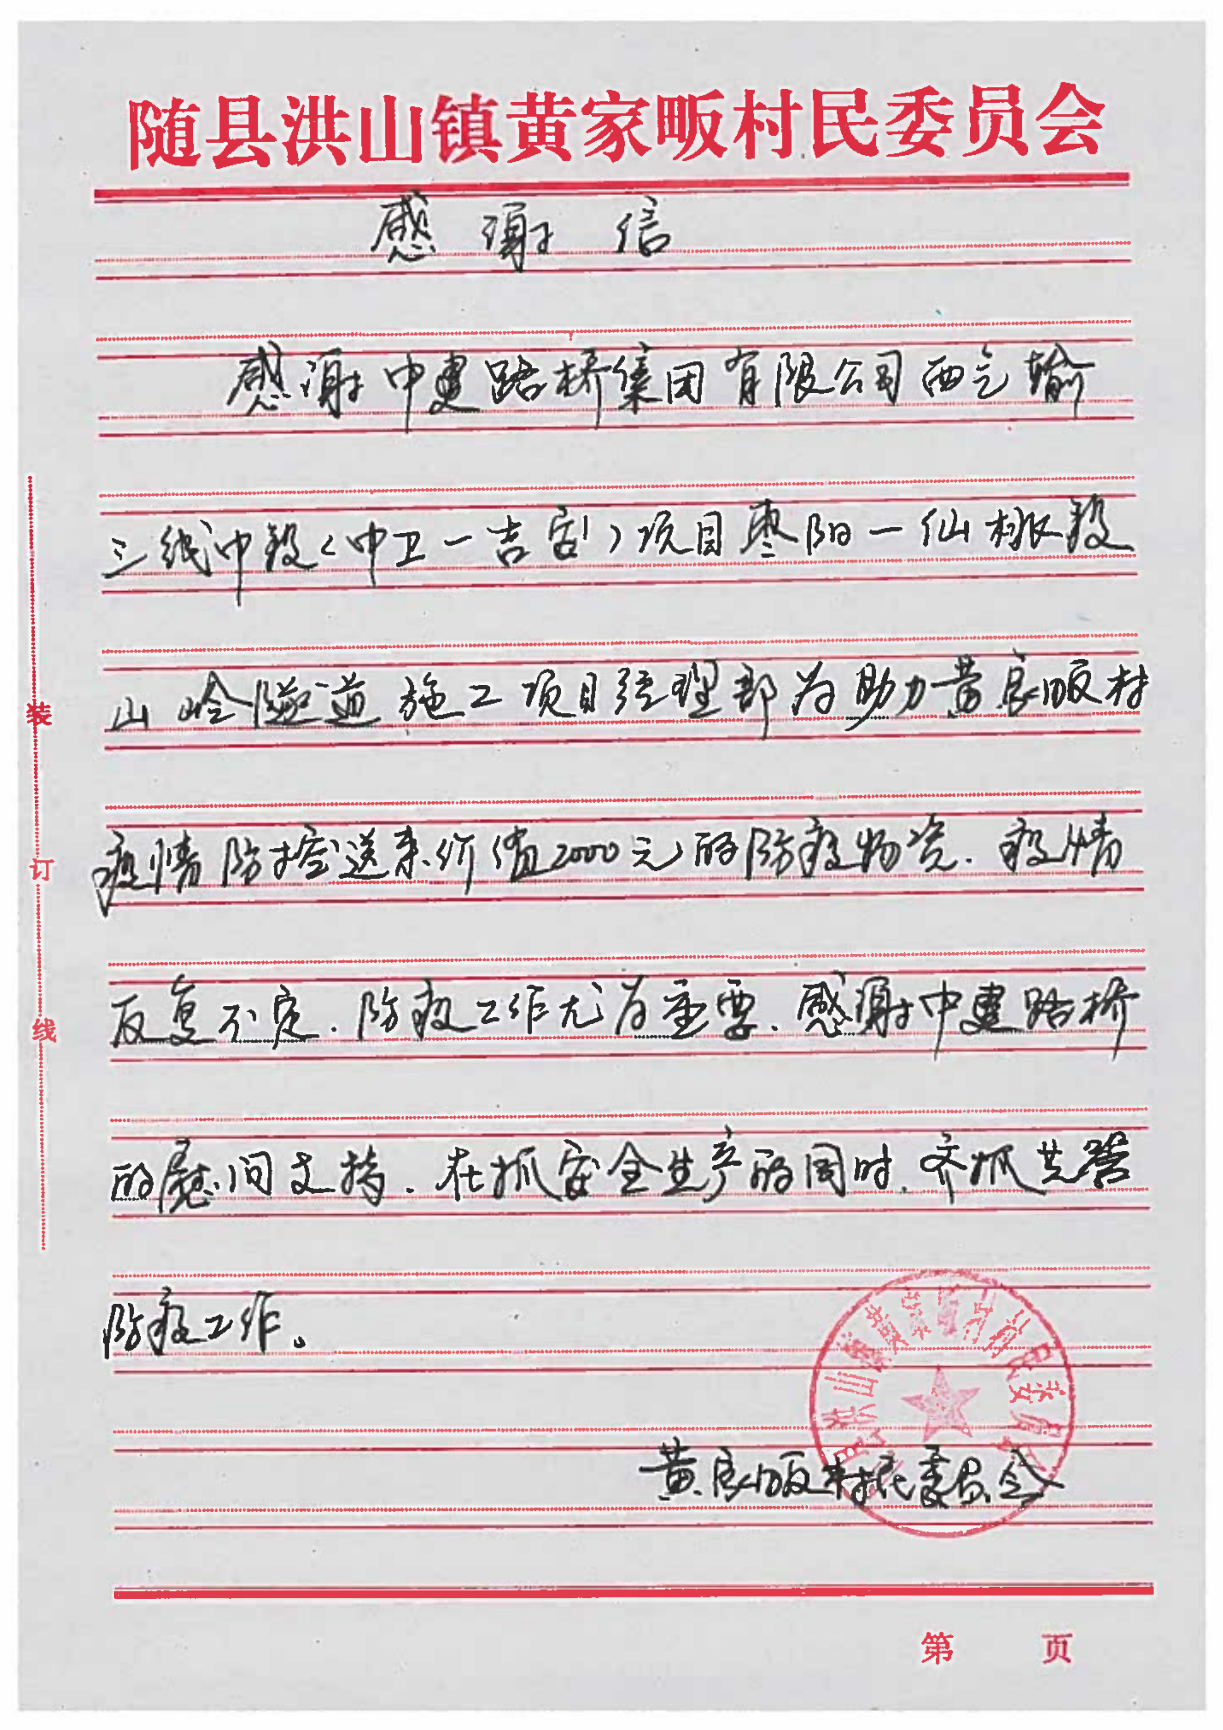 随县洪山镇黄家畈村民委员会
感谢信
感谢中建路桥集团有限公司西气输
三线中段(中卫一吉安)项目枣阳一仙桃段
山岭隧道施工项目经理部为助力黄家畈村
疫情防控送来价值2000元的防疫物资.疫情
反复不定.防疫工作尤为重要.感谢中建路桥
的慰问支持.在抓安全生产的同时.齐抓共管
防疫工作。
洪山镇黄家畈村村民委员会
黄家畈村民委员会
装
订
线
第 页